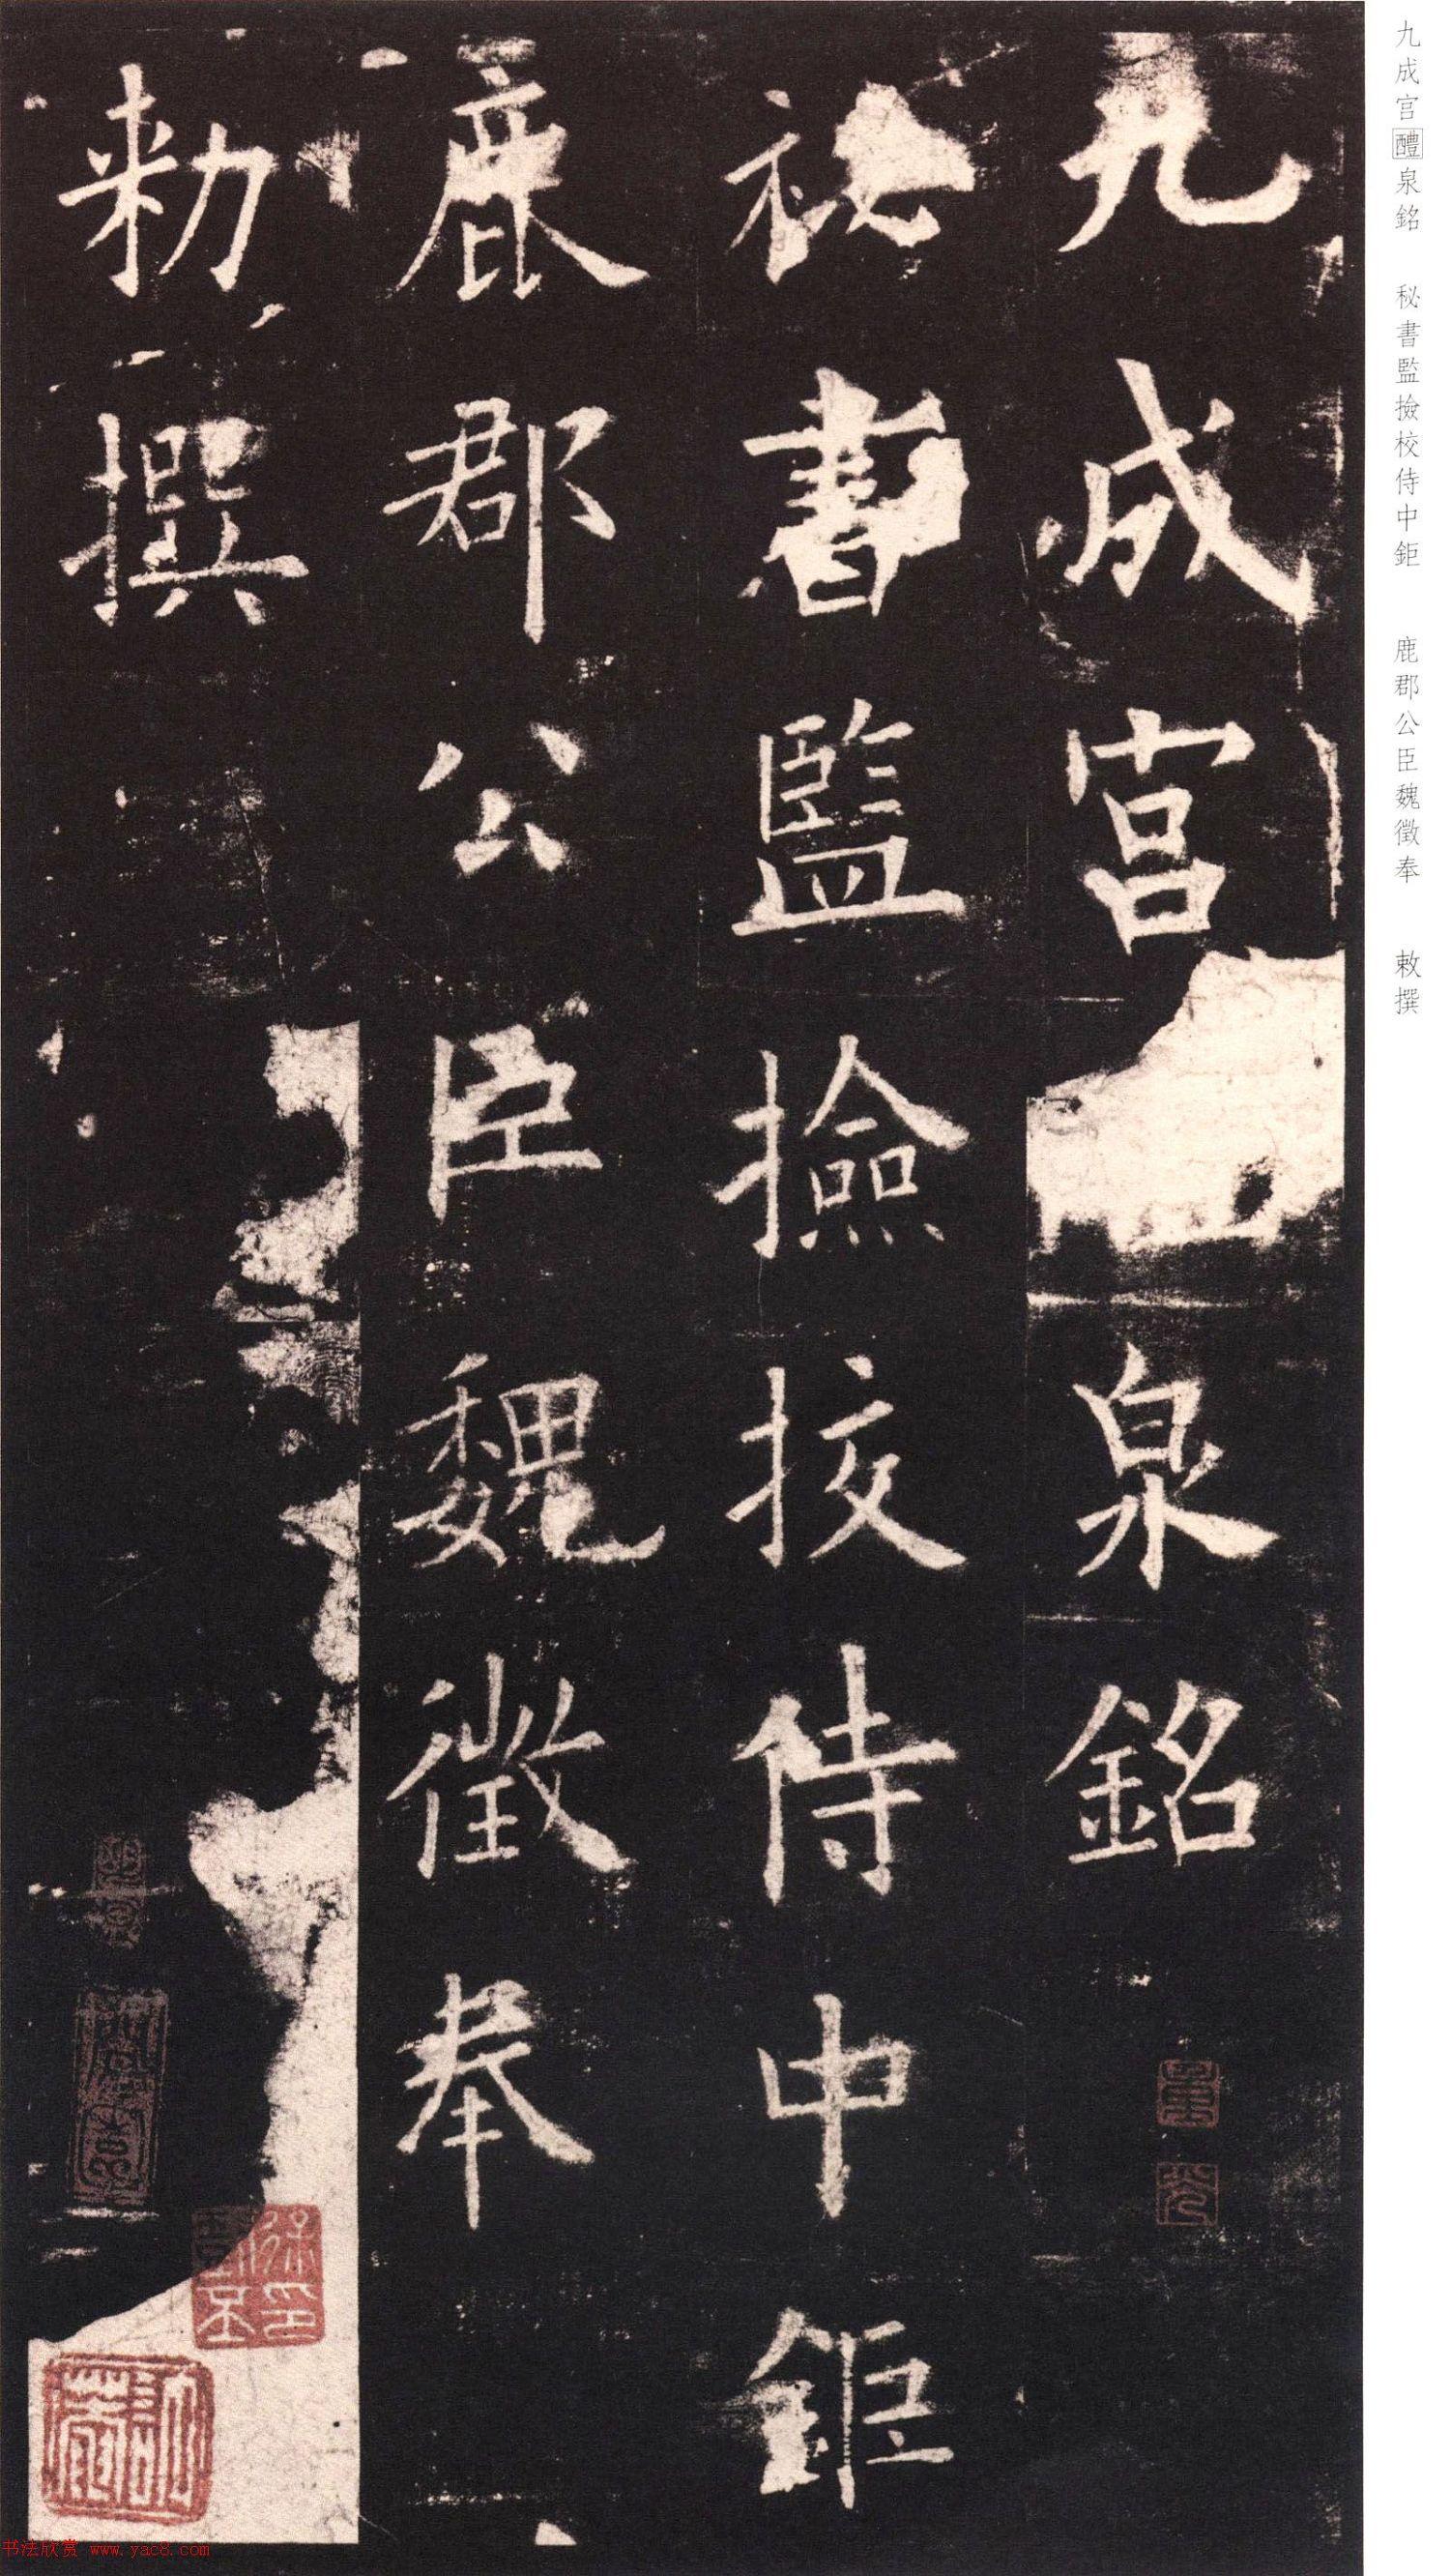 九成宮醴泉銘　秘書監撿校侍中鉅　鹿郡公臣魏徵奉　敕撰
九成宮泉銘
祕書監撿挍侍中鉅
鹿郡公臣魏徵奉
勑撰
书法欣赏 www.yac8.com